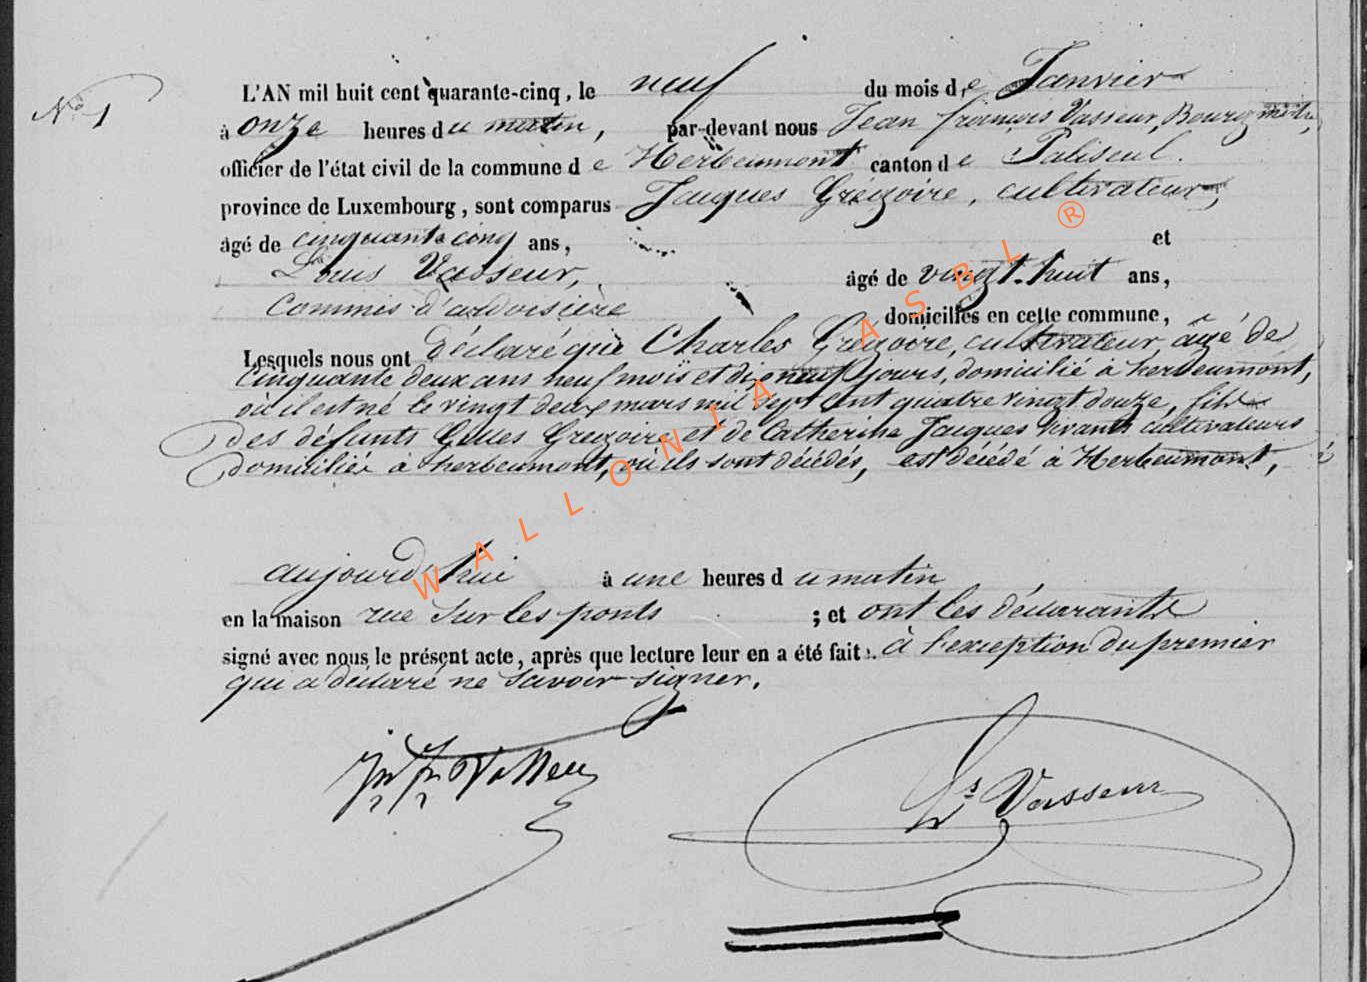 N° 1
L'AN mil huit cent quarante-cinq, le neuf du mois de Janvier
à onze heures du matin, par-devant nous Jean françois Vasseur, Bourgmestre,
officier de l'état civil de la commune de Herbeumont canton de Paliseul.
province de Luxembourg, sont comparus Jacques Grégoire, cultivateur,
âgé de cinquante cinq ans, et
Louis Vasseur, âgé de vingt-huit ans,
Commis d'ardoisière domiciliés en cette commune,
Lesquels nous ont déclaré que Charles Grégoire, cultivateur, âgé de
Cinquante deux ans neuf mois et dix neuf jours, domicilié à herbeumont,
où il est né le vingt deux mars mil sept cent quatre vingt douze, fils
des défunts Gilles Gregoire et de Catherine Jacques vivants cultivateurs
domiciliés à herbeumont, où ils sont décédés, est décédé à Herbeumont,
aujourd'hui à une heures du matin
en la maison rue Sur les ponts ; et ont les déclarants
signé avec nous le présent acte, après que lecture leur en a été fait. à l'exception du premier
qui a déclaré ne Savoir signer.
Jn Fr Vasseur
Ls Vasseur
WALLONIA ASBL ®